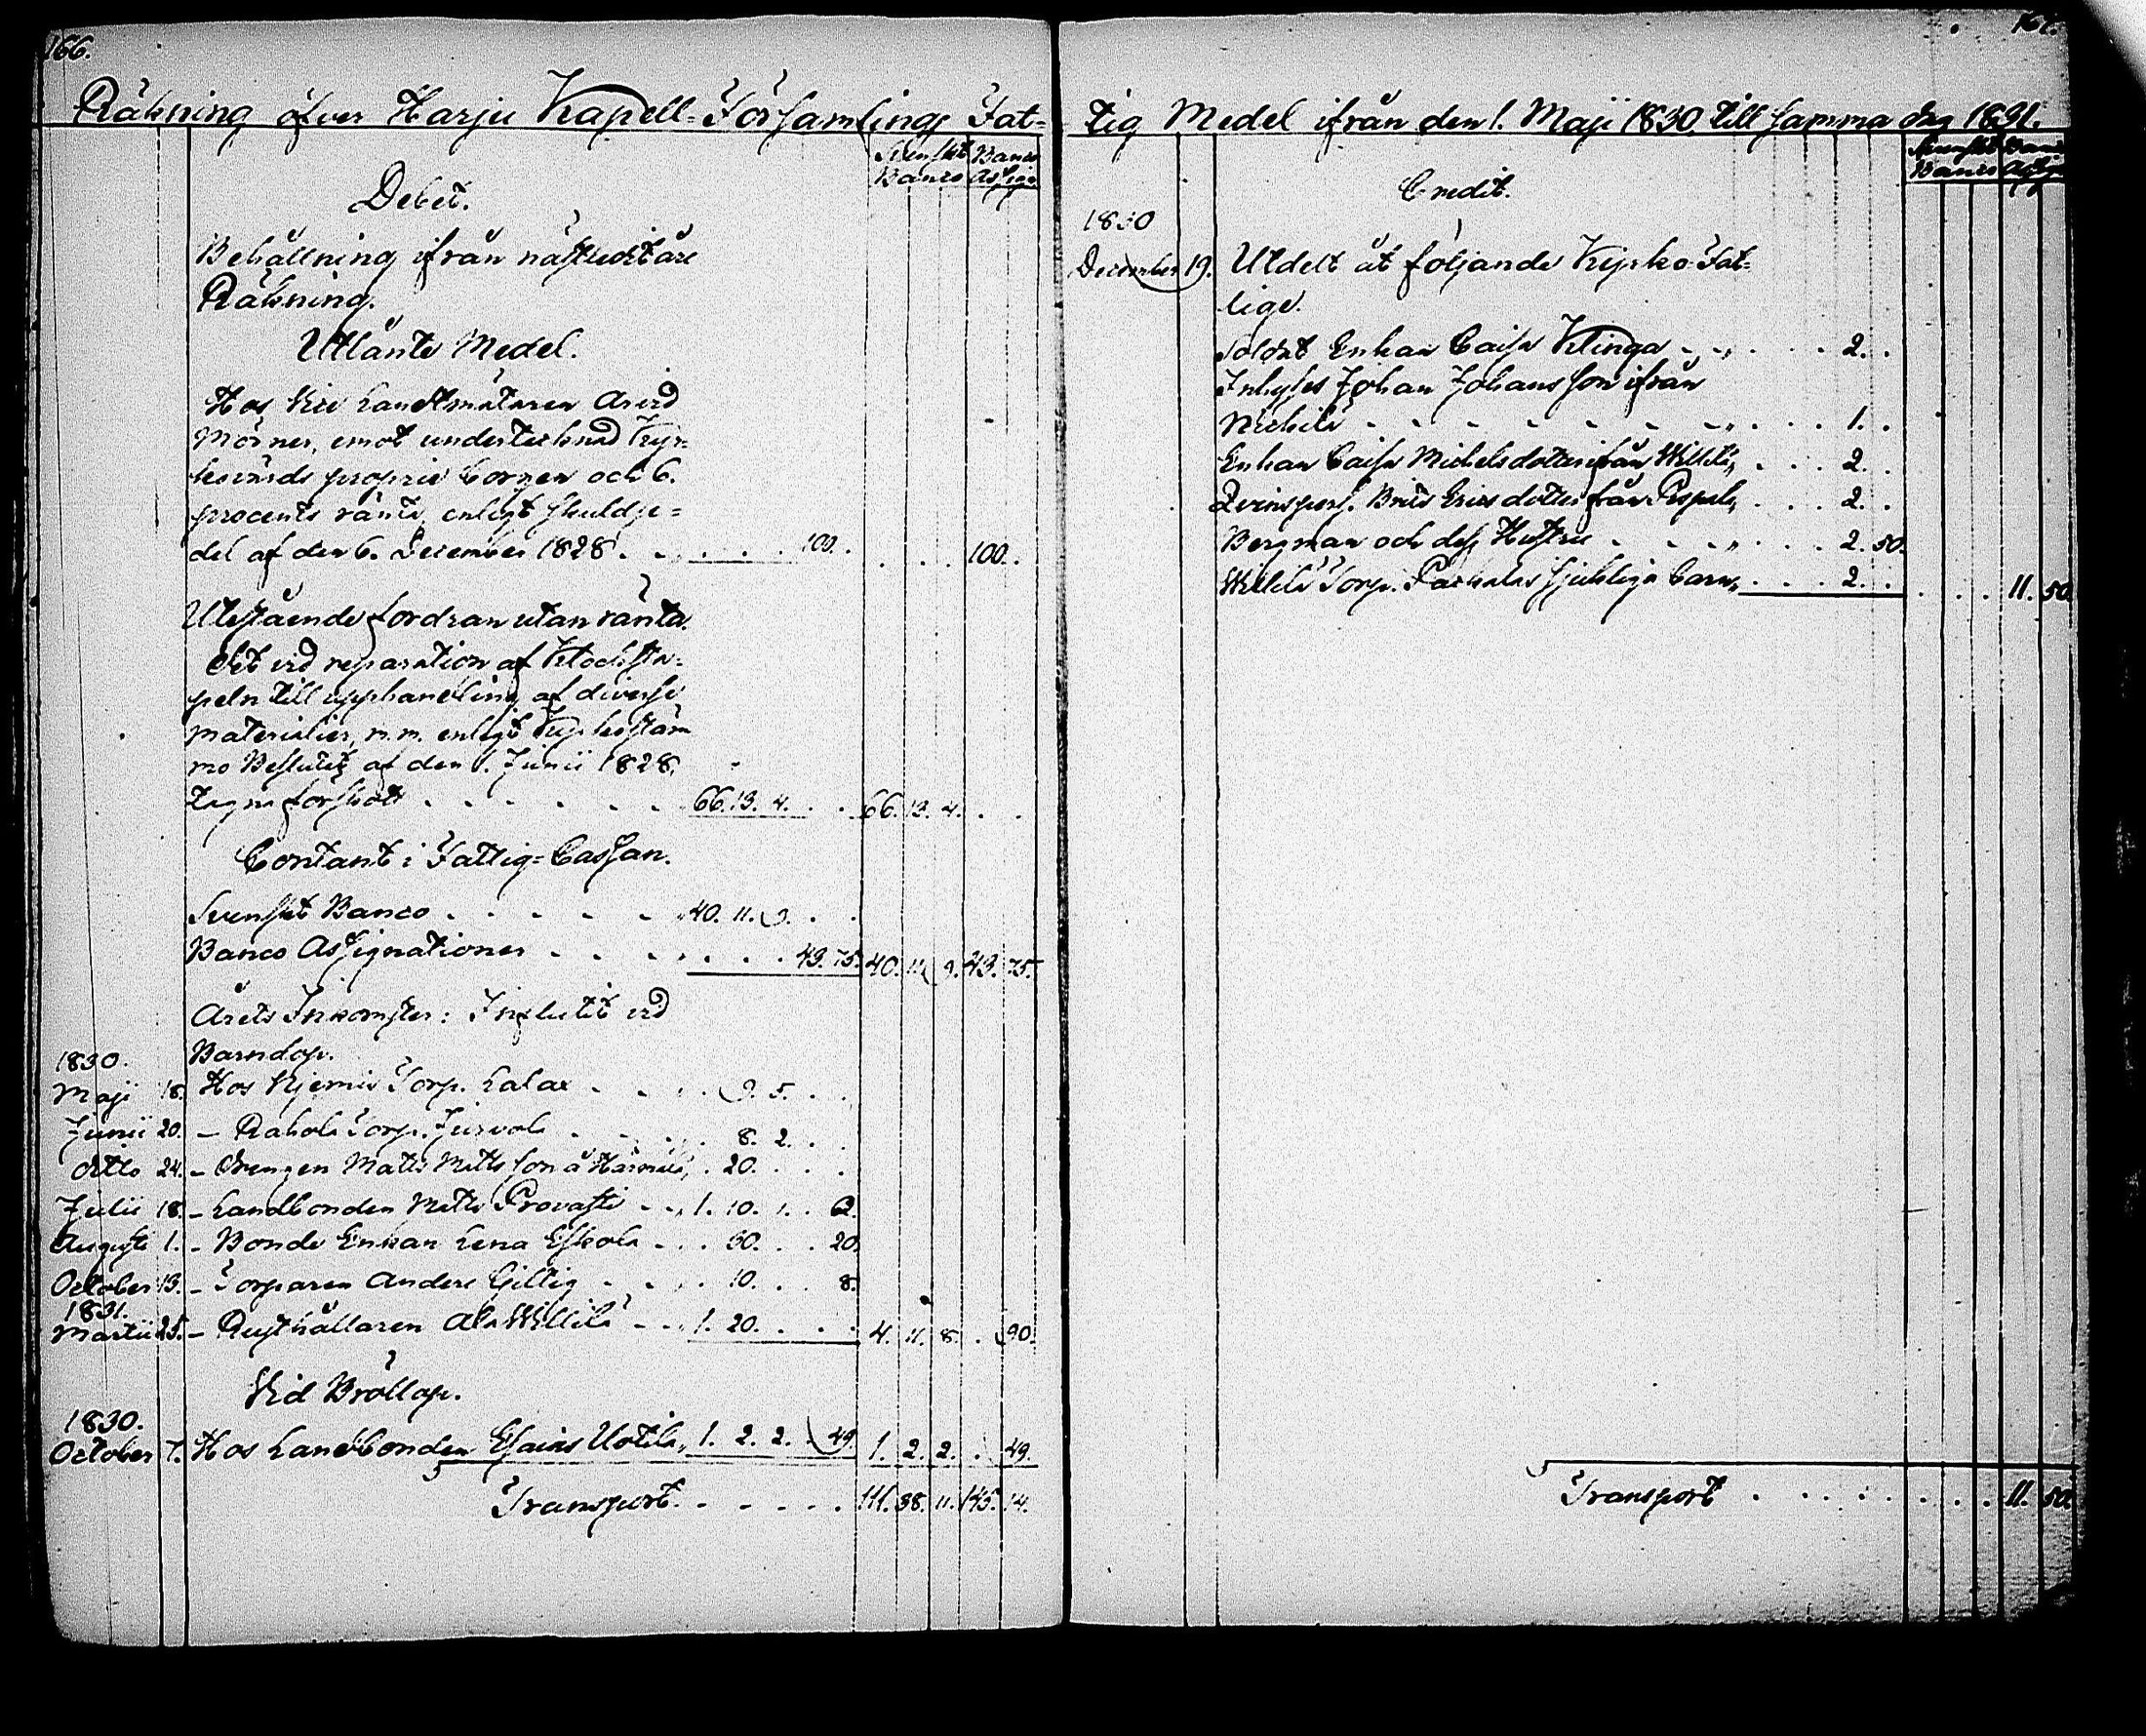 166.
Räkning öfver Harju Kapell-Församlings Fat-
Svenskt Banco
Banco Assign
Debet.
Behållning ifrån nästledit års
Räkning.
Utlånte Medel.
Hos Vice Landtmätaren Arvid
Mörner, emot undertecknad Kyr-
kovärds proprie borgen och 6.
procents ränta, enligt skuldse-
del af den 6. December 1828. 100. 100.
Utestående fordran utan ränta.
Det vid reparation af Klocksta-
peln till upphandling af diverse
materialier, m.m. enligt Kyrkostäm
mo Beslutet af den 1. Junii 1828.
tagna förskott 66. 13. 4. 66. 13. 4.
Contant i Fattig-Cassan.
Svenskt Banco 40. 11. 9.
Banco Assignationer 43. 75. 40. 11. 9. 43. 75.
Årets Inkomster: Influtit vid
Barndop.
1830.
Maji 18. Hos Niemis Torp. Lalax 9. 5.
Junii 20. - Rahola Torp. Jusvola 8. 2.
ditto 24. - Drengen Matts Mattsson å Härmälä, 20.
Julii 18. - Landbonden Matts Provasti 1. 10. 1. 62.
Augusti 1. - Bonde Enkan Lena Eskola 30. 20.
October 13. - Torparen Anders Gillig 10. 8.
1831.
Martii 25. - Rusthållaren Ala Willilä 1. 20. 4. 11. 8. 90.
Vid Bröllop.
1830.
October 7. Hos Landbonden Esaias Uotila, 1. 2. 2. 49. 1. 2. 2. 49.
Transport 111. 38. 11. 145. 14.
167.
tig Medel ifrån den 1. Maji 1830. till samma dag 1831.
Svenskt Banco
Banco Assign
Credit.
1830
December 19. Utdelt åt följande Kyrko-Fat-
tige.
Soldat Enkan Caisa Klinga 2.
Inhyses Johan Johansson ifrån
Nichilä 1.
Enkan Caisa Michelsdotter ifrån Willilä, 2.
Qvinspers. Brita Ericsdotter från Pispala, 2.
Bergman och dess Hustru 2. 50.
Willilä Torp. Packalas sjukliga barn, 2. 11. 50.
Transport 11. 50.